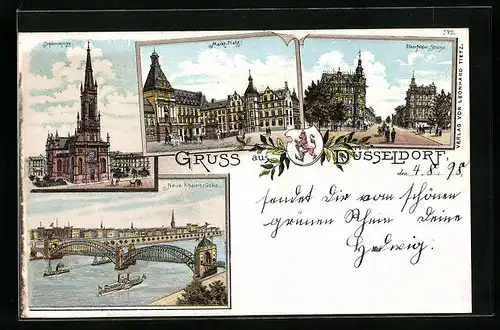 Johanniskirche.
Markt-Platz.
Elberfelder Strasse.
VERLAG VON LEONHARD TIETZ.
GRUSS aus DÜSSELDORF.
den 4.8.98
Neue Rheinbrücke.
sendet Dir vom schönen
grünen Rhein Deine
Hedwig.